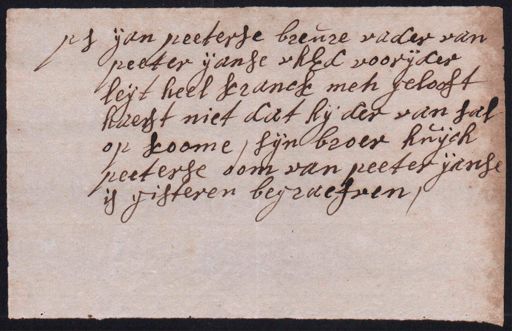 ps ÿan peeterse breure vader van
peeter ÿanse voorÿder
leÿt heel kranck men gelooft
haest niet dat hÿ der van sal
op koome, sÿn broer huÿch
peeterse oom van peeter ÿanse
is gisteren begraefven,